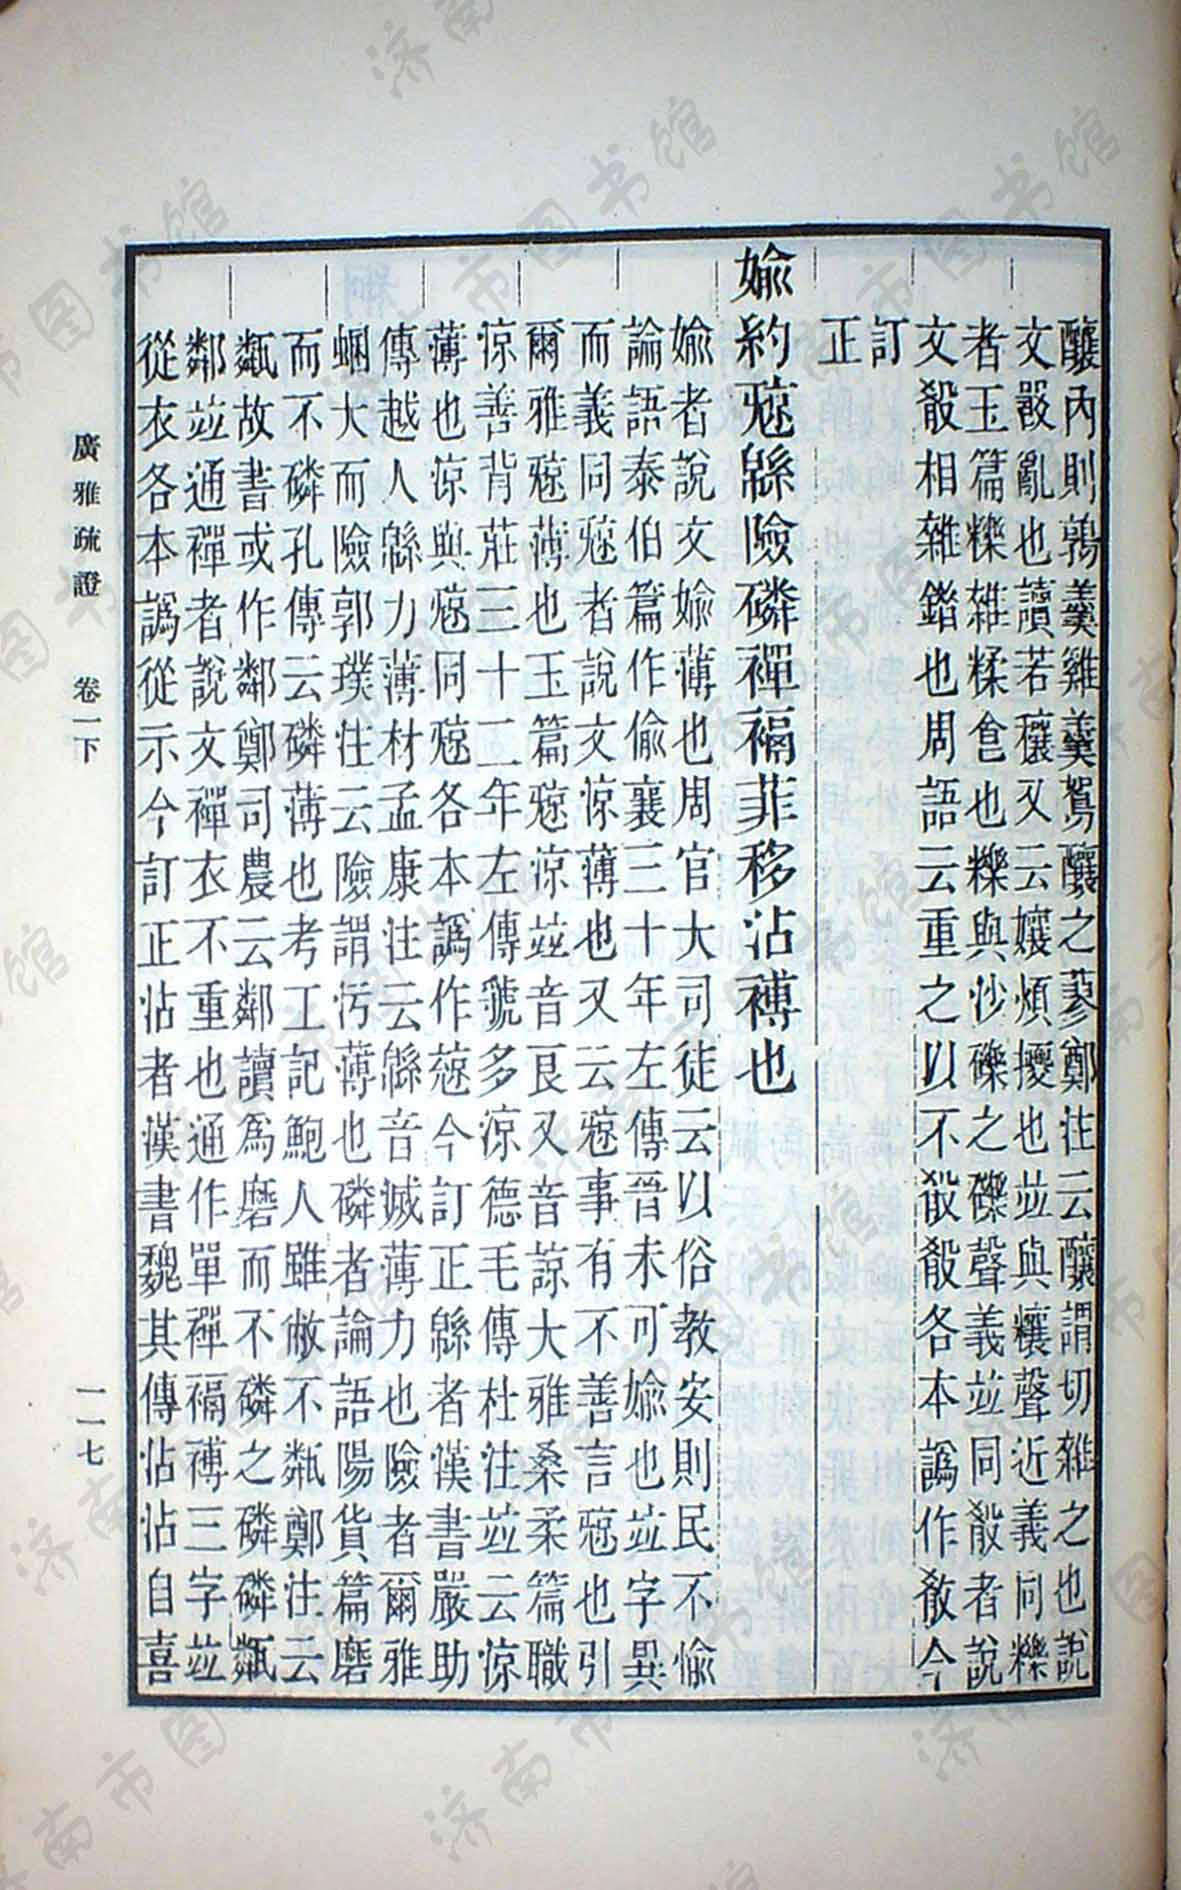 釀內則鶉羹雞羹鴽釀之蓼鄭注云釀謂切雜之也說
文㗊亂也讀若穰又云孃煩擾也竝與釀聲近義同糅
者玉篇糅雜糅飽也糅與沙礫之礫聲義竝同殽者說
文殽相雜錯也周語云重之以不殽殽各本譌作㪣今
訂
正
媮約㹁緜險磷襌褊菲移沾襮也
媮者說文媮薄也周官大司徒云以俗教安則民不愉
論語泰伯篇作偷襄三十年左傳晉未可媮也竝字異
而義同㹁者說文涼薄也又云㹁事有不善言㹁也引
爾雅㹁薄也玉篇㹁涼竝音良又音諒大雅桑柔篇職
涼善背莊三十二年左傳虢多涼德毛傳杜注竝云涼
薄也涼與㹁同㹁各本譌作㥄今訂正緜者漢書嚴助
傳越人緜力薄材孟康注云緜音滅薄力也險者爾雅
蜠大而險郭璞注云險謂污薄也磷者論語陽貨篇磨
而不磷孔傳云磷薄也考工記鮑人雖敝不甐鄭注云
甐故書或作鄰鄭司農云鄰讀為磨而不磷之磷磷甐
鄰竝通襌者說文襌衣不重也通作單襌褊襮三字竝
從衣各本譌從示今訂正沾者漢書魏其傳沾沾自喜
廣雅疏證　卷一下
一一七